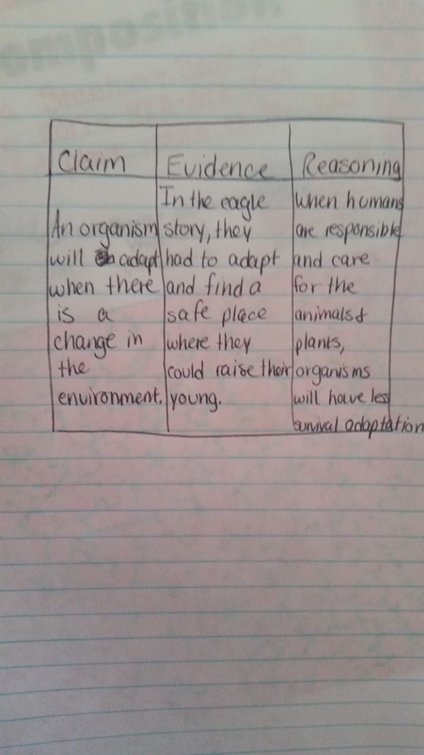 omposition
Claim
An organism
will adapt
when there
is a
change in
the
environment.
Evidence
In the eagle
story, they
had to adapt
and find a
safe place
where they
could raise their
young.
Reasoning
when humans
are responsible
and care
for the
animals &
plants,
organisms
will have less
survival adaptation